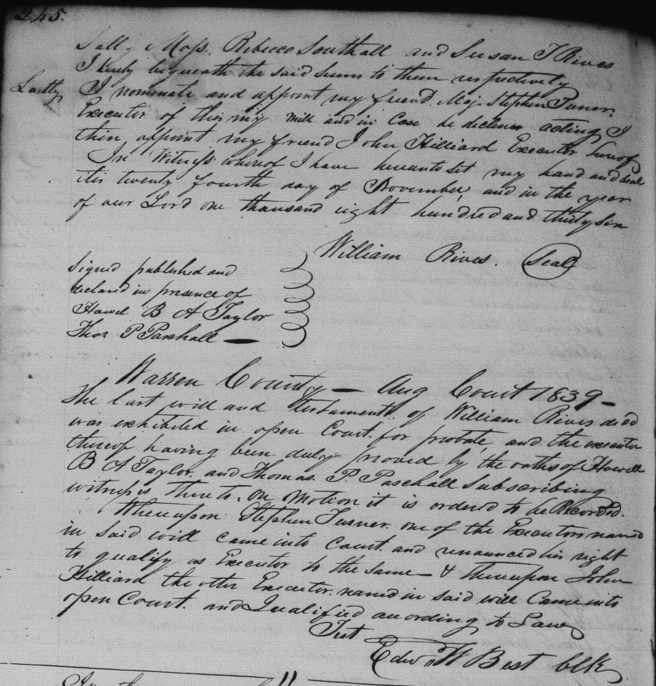 245.
Sally Moss, Rebecca Southall and Susan T Rives
I truly bequeath the said sums to them respectively
Lastly I nominate and appoint my friend Maj. Stephen Turner
Executor of this my will and in Case he declines acting I
then appoint my friend John Hilliard Executor hereof
In Witness whereof I have hereunto set my hand and seal
this twenty fourth day of November, and in the year
of our Lord one thousand eight hundred and thirty six
William Rives. Seal
Signed published and
declared in presence of
Howel B A Taylor
Thos P Paschall
Warren County — Aug Court 1839 —
The last will and testament of William Rives decd
was exhibited in open Court for probate and the execution
thereof having been duly proved by the oaths of Howell
B A Taylor, and Thomas P. Paschall Subscribing
witnesses thereto, on motion it is ordered to be Recorded.
Whereupon Stephen Turner one of the Executors named
in said will came into Court and renounced his right
to qualify as Executor to the same — & thereupon John
Hilliard the other Executor named in said will Came into
open Court and Qualified according to Law
Test
Edw W Best Clk